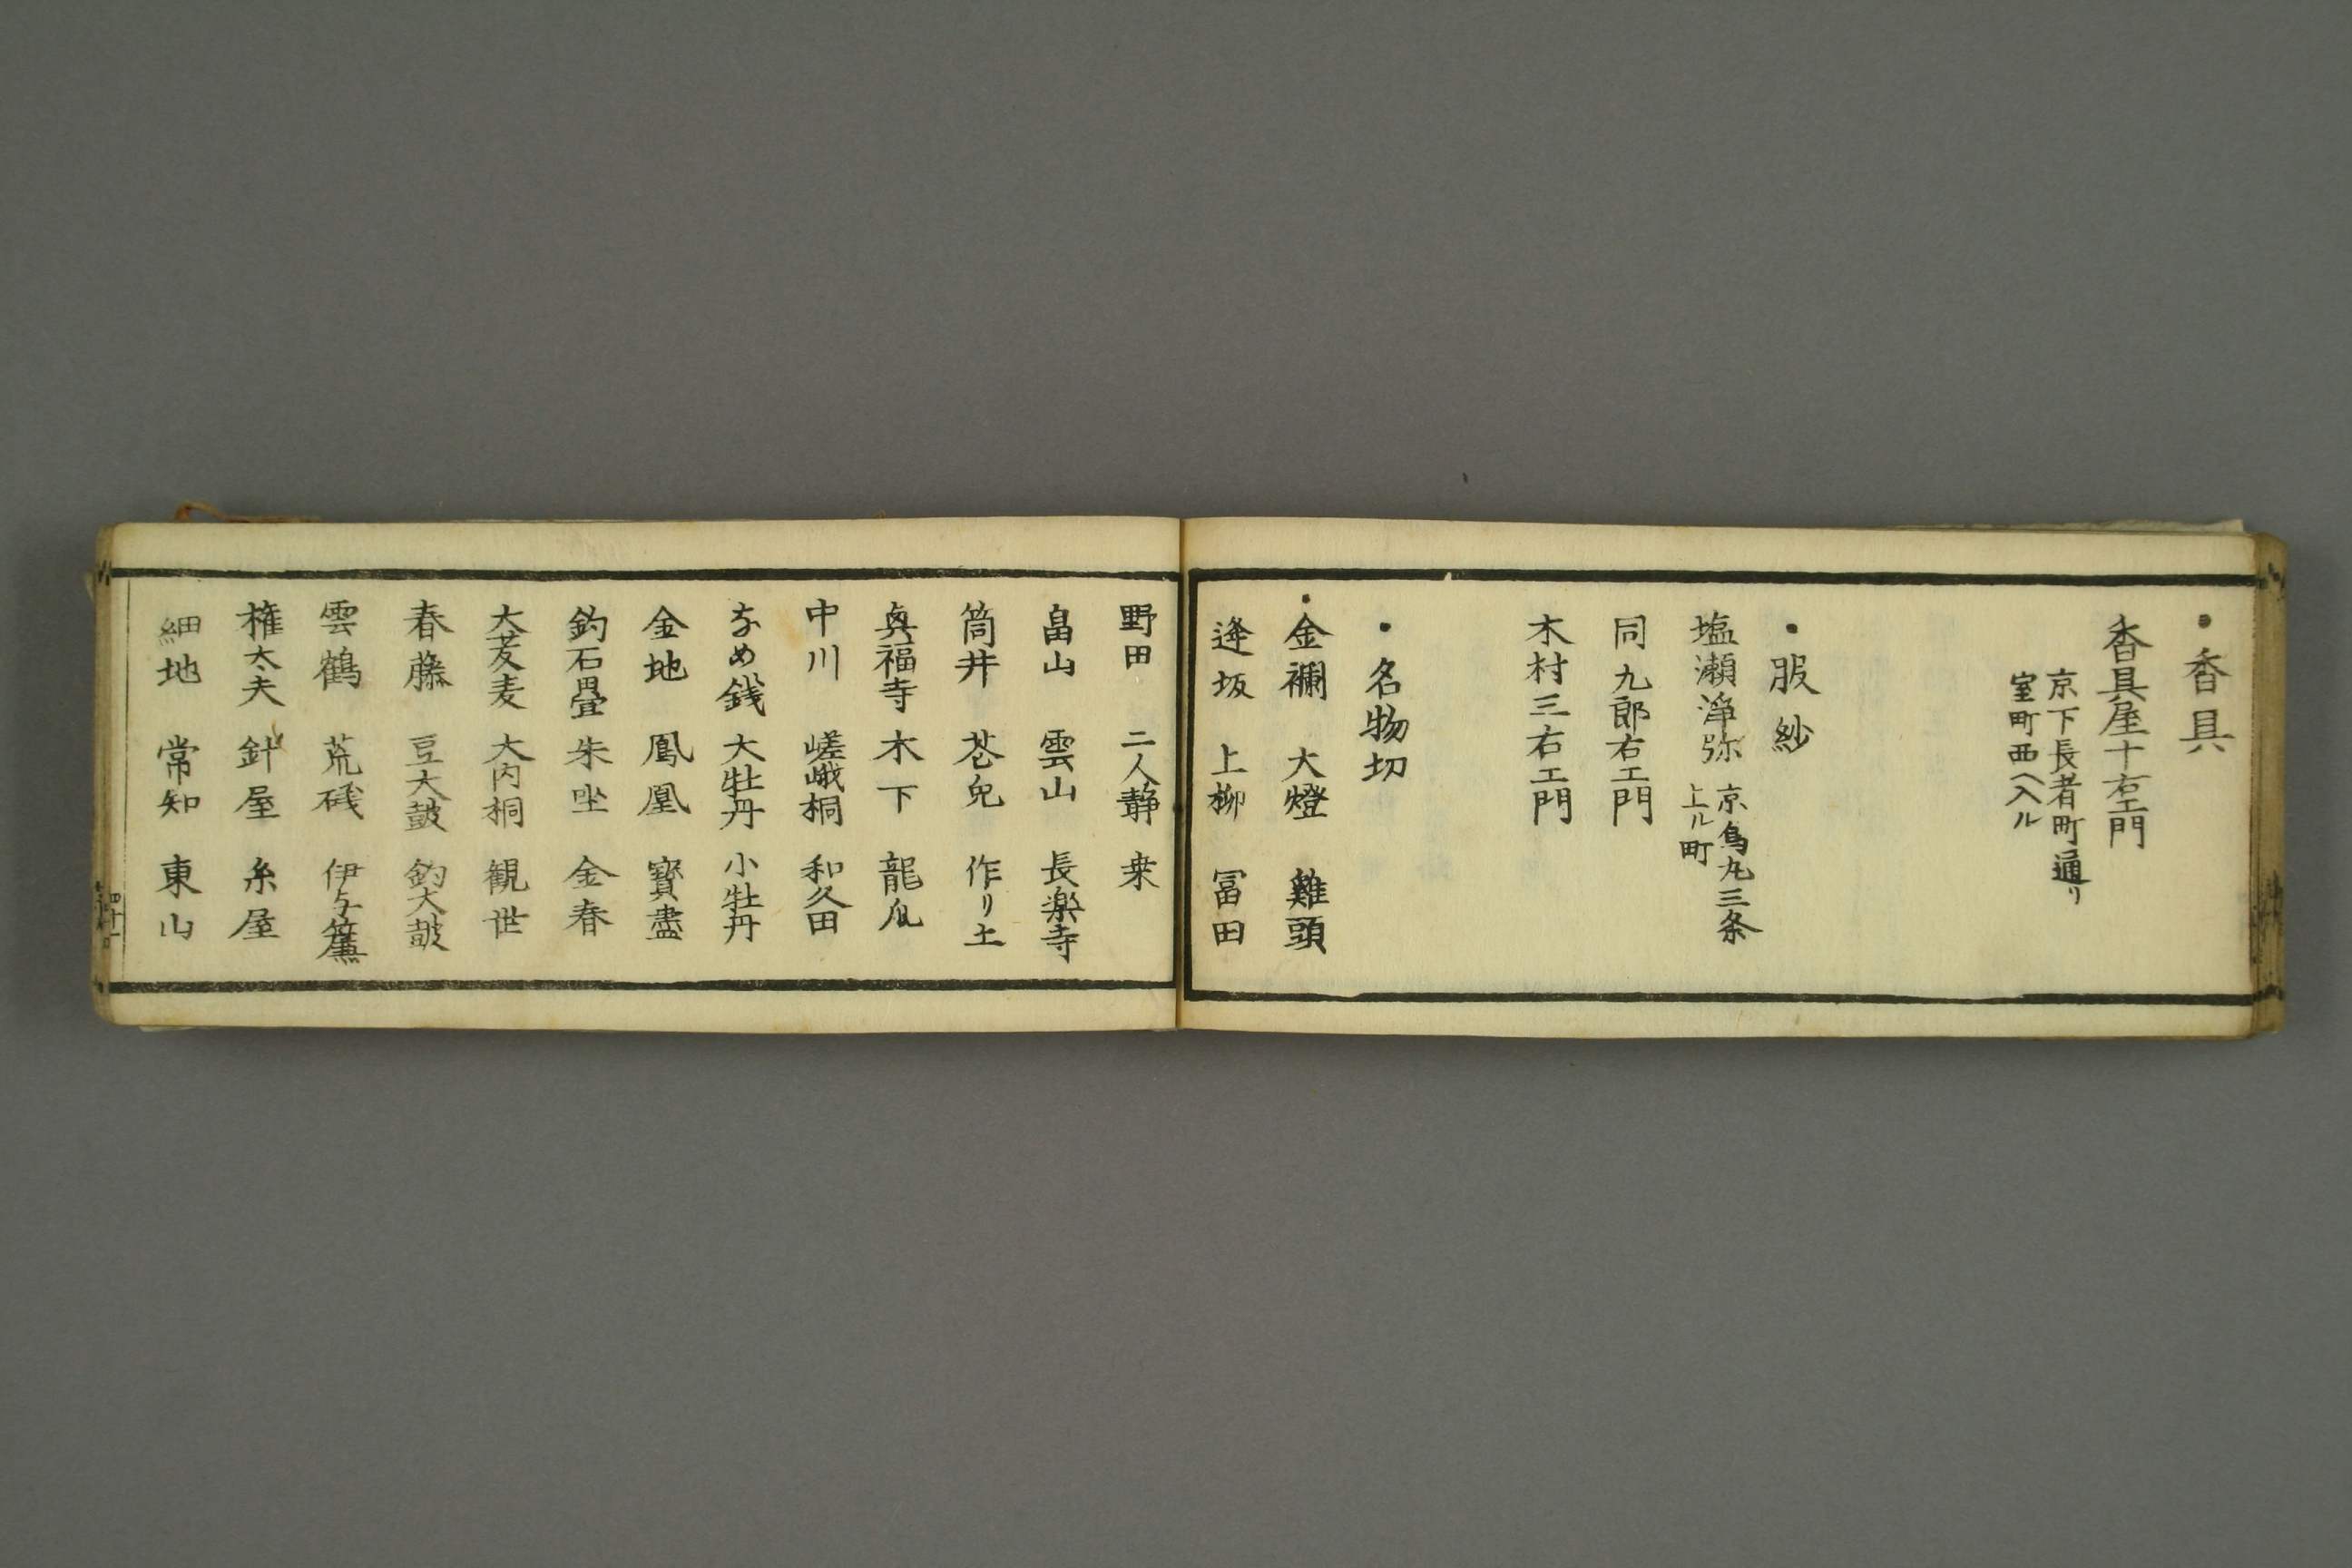 ・香具
香具屋十右エ門
京下長者町通り
室町西ヘ入ル
・服紗
塩瀬浄弥
京烏丸三条
上ル町
同九郎右エ門
木村三右エ門
・名物切
・金襴 大燈 雞頭
逢坂 上柳 冨田
野田 二人静 桒
畠山 雲山 長楽寺
筒井 花兎 作リ土
眞福寺 木下 龍爪
中川 嵯峨桐 和久田
なめ銭 大牡丹 小牡丹
金地 鳳凰 寳盡
釣石畳 朱坐 金春
大蔆麦 大内桐 観世
春藤 豆大鼓 釣大鼓
雲鶴 荒磯 伊与簾
権太夫 針屋 糸屋
細地 常知 東山